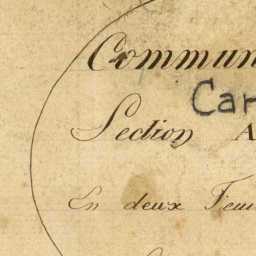 Commun
Car
Section A
En deux Feui